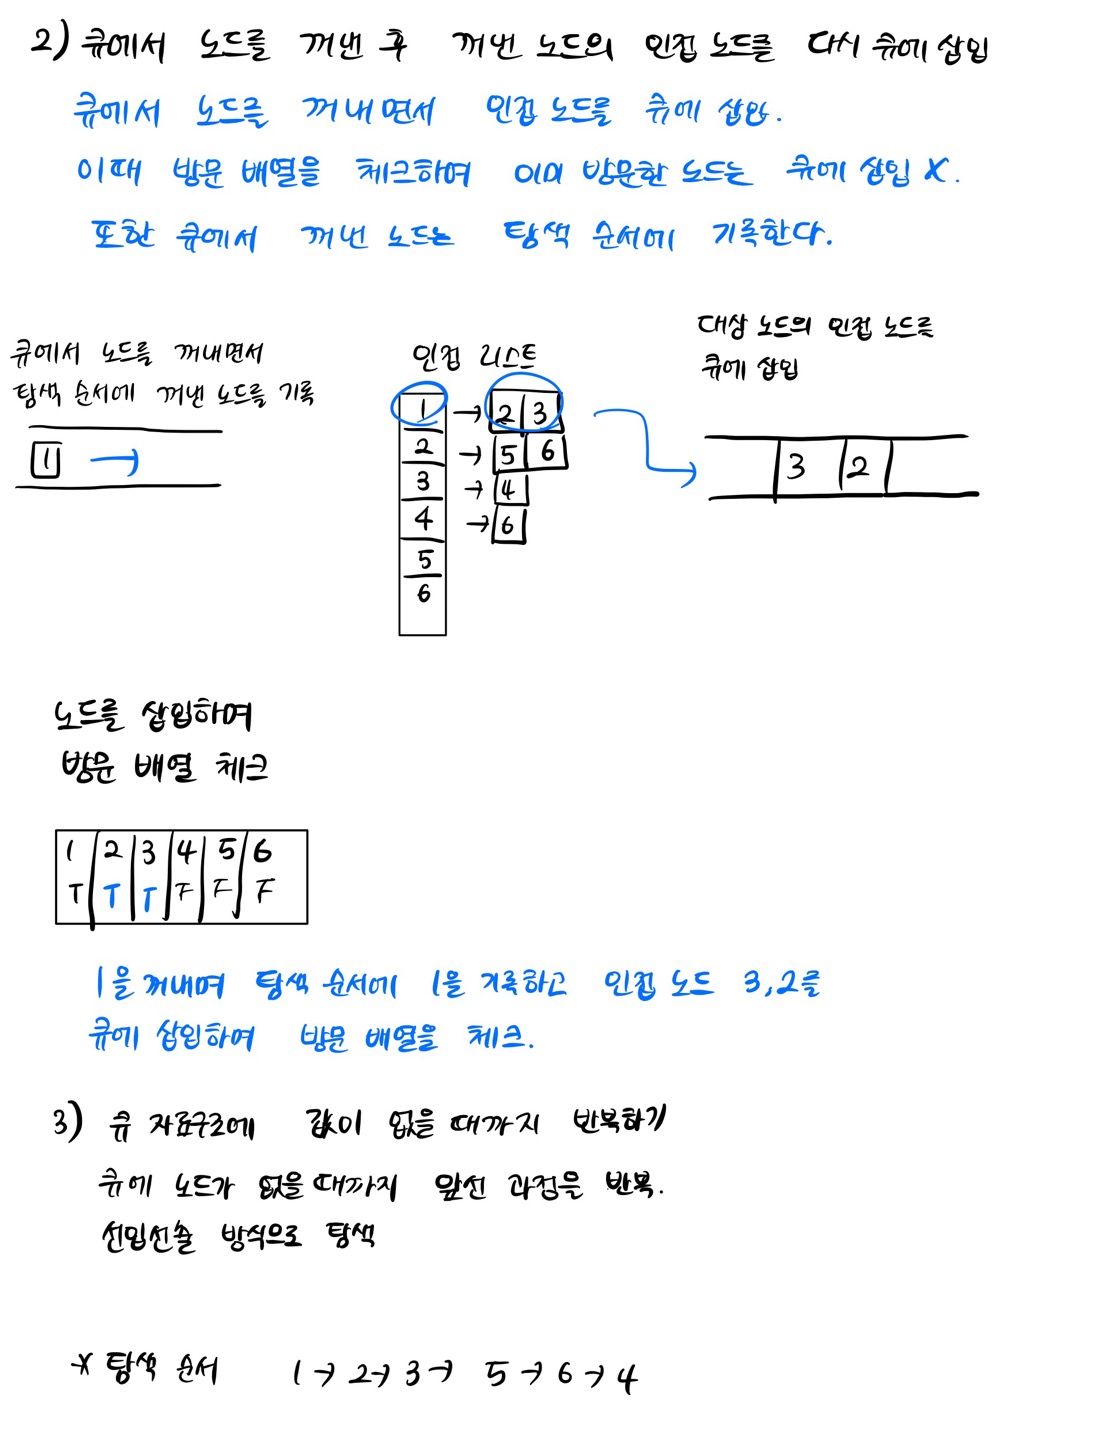 2) 큐에서 노드를 꺼낸 후 꺼낸 노드의 인접 노드를 다시 큐에 삽입
큐에서 노드를 꺼내면서 인접 노드를 큐에 삽입.
이때 방문 배열을 체크하여 이미 방문한 노드는 큐에 삽입 X.
또한 큐에서 꺼낸 노드는 탐색 순서에 기록한다.
큐에서 노드를 꺼내면서
탐색 순서에 꺼낸 노드를 기록
1 →
인접 리스트
1 → 2 3
2 → 5 6
3 → 4
4 → 6
5
6
대상 노드의 인접 노드를
큐에 삽입
3 2
노드를 삽입하여
방문 배열 체크
1 2 3 4 5 6
T T T F F F
1을 꺼내며 탐색 순서에 1을 기록하고 인접 노드 3,2를
큐에 삽입하여 방문 배열을 체크.
3) 큐 자료구조에 값이 없을 때까지 반복하기
큐에 노드가 없을 때까지 앞선 과정을 반복.
선입선출 방식으로 탐색
* 탐색 순서 1 → 2 → 3 → 5 → 6 → 4